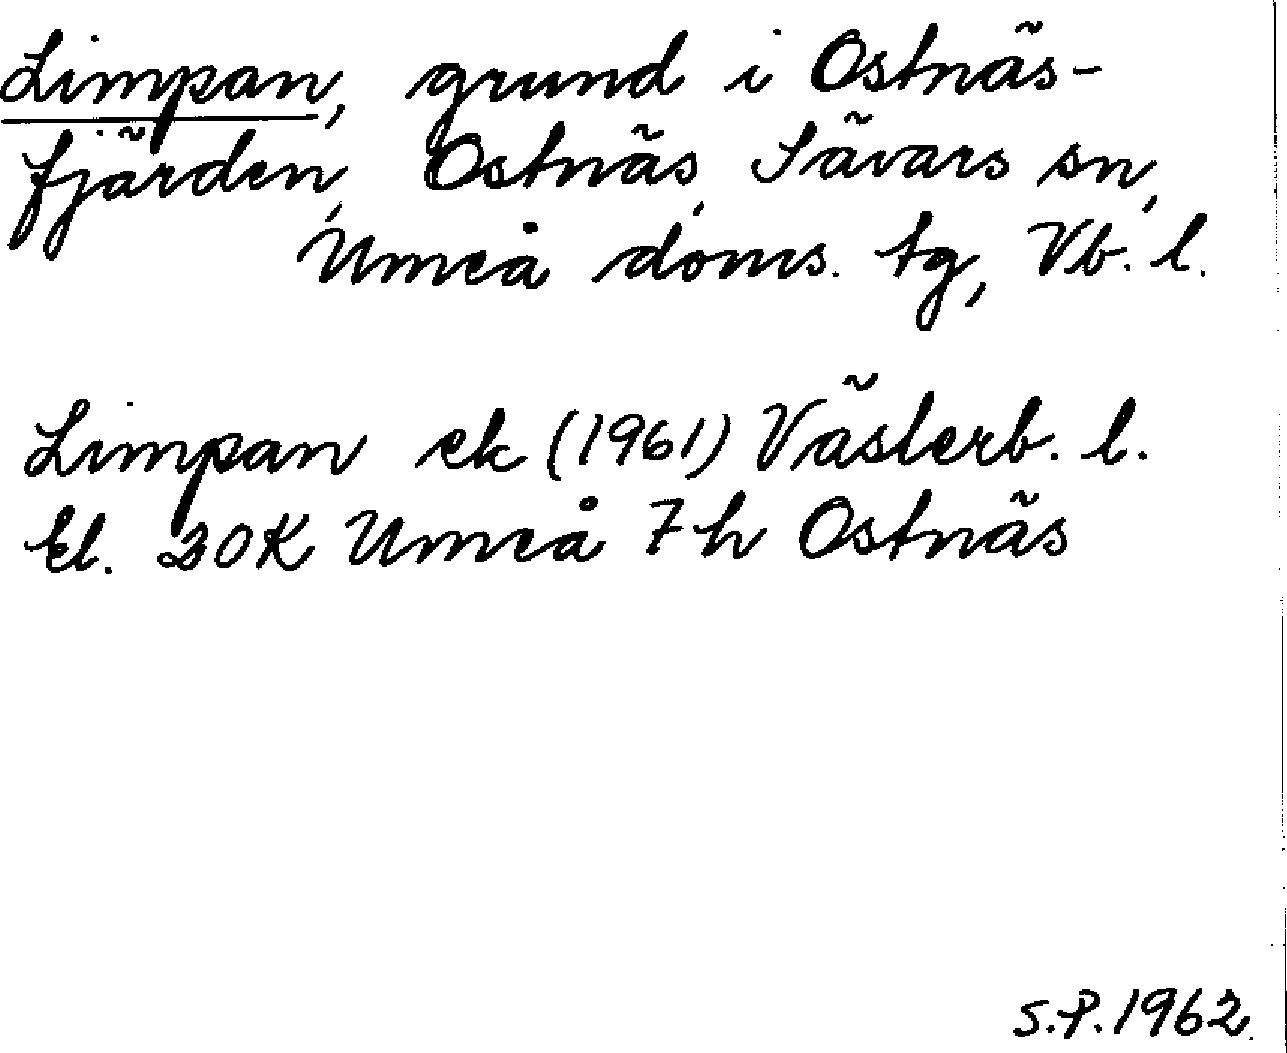 Limpan, grund i Ostnäs-
fjärden, Ostnäs, Sävars sn,
Umeå doms. tg, Vb. l.
Limpan ek (1961) Västerb. l.
bl. 20K Umeå 7h Ostnäs
S.P. 1962.